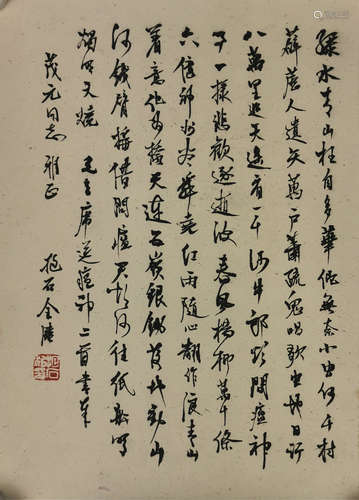 綠水青山枉自多華佗無奈小虫何千村
薜荔人遺矢萬户蕭疏鬼唱歌坐地日行
八萬里巡天遥看一千河牛郎欲問瘟神
事一樣悲歡逐逝波春風楊柳萬千條
六億神州盡舜堯紅雨隨心翻作浪青山
着意化為橋天連五嶺銀鋤落地動山
河鐵臂摇借問瘟君欲何往紙船明
燭照天燒 毛主席送瘟神二首書奉
茂元同志雅正
抱石金陵